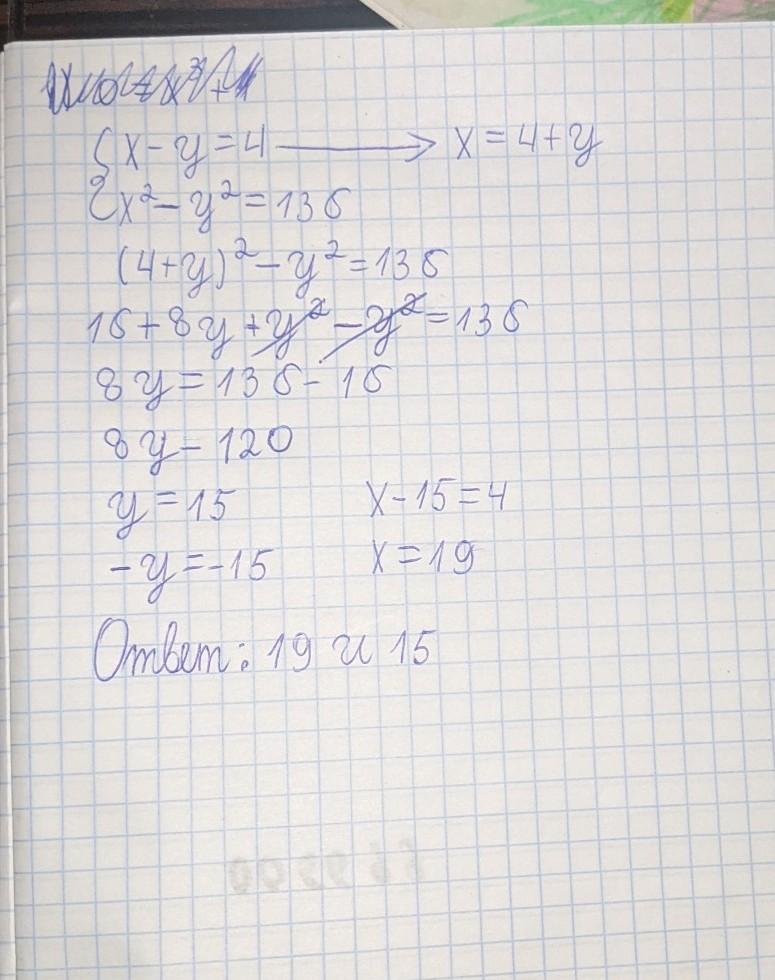 {x - y = 4 ⟶ x = 4 + y
{x² - y² = 136
(4 + y)² - y² = 136
16 + 8y + y² - y² = 136
8y = 136 - 16
8y - 120
y = 15 x - 15 = 4
-y = -15 x = 19
Ответ: 19 и 15